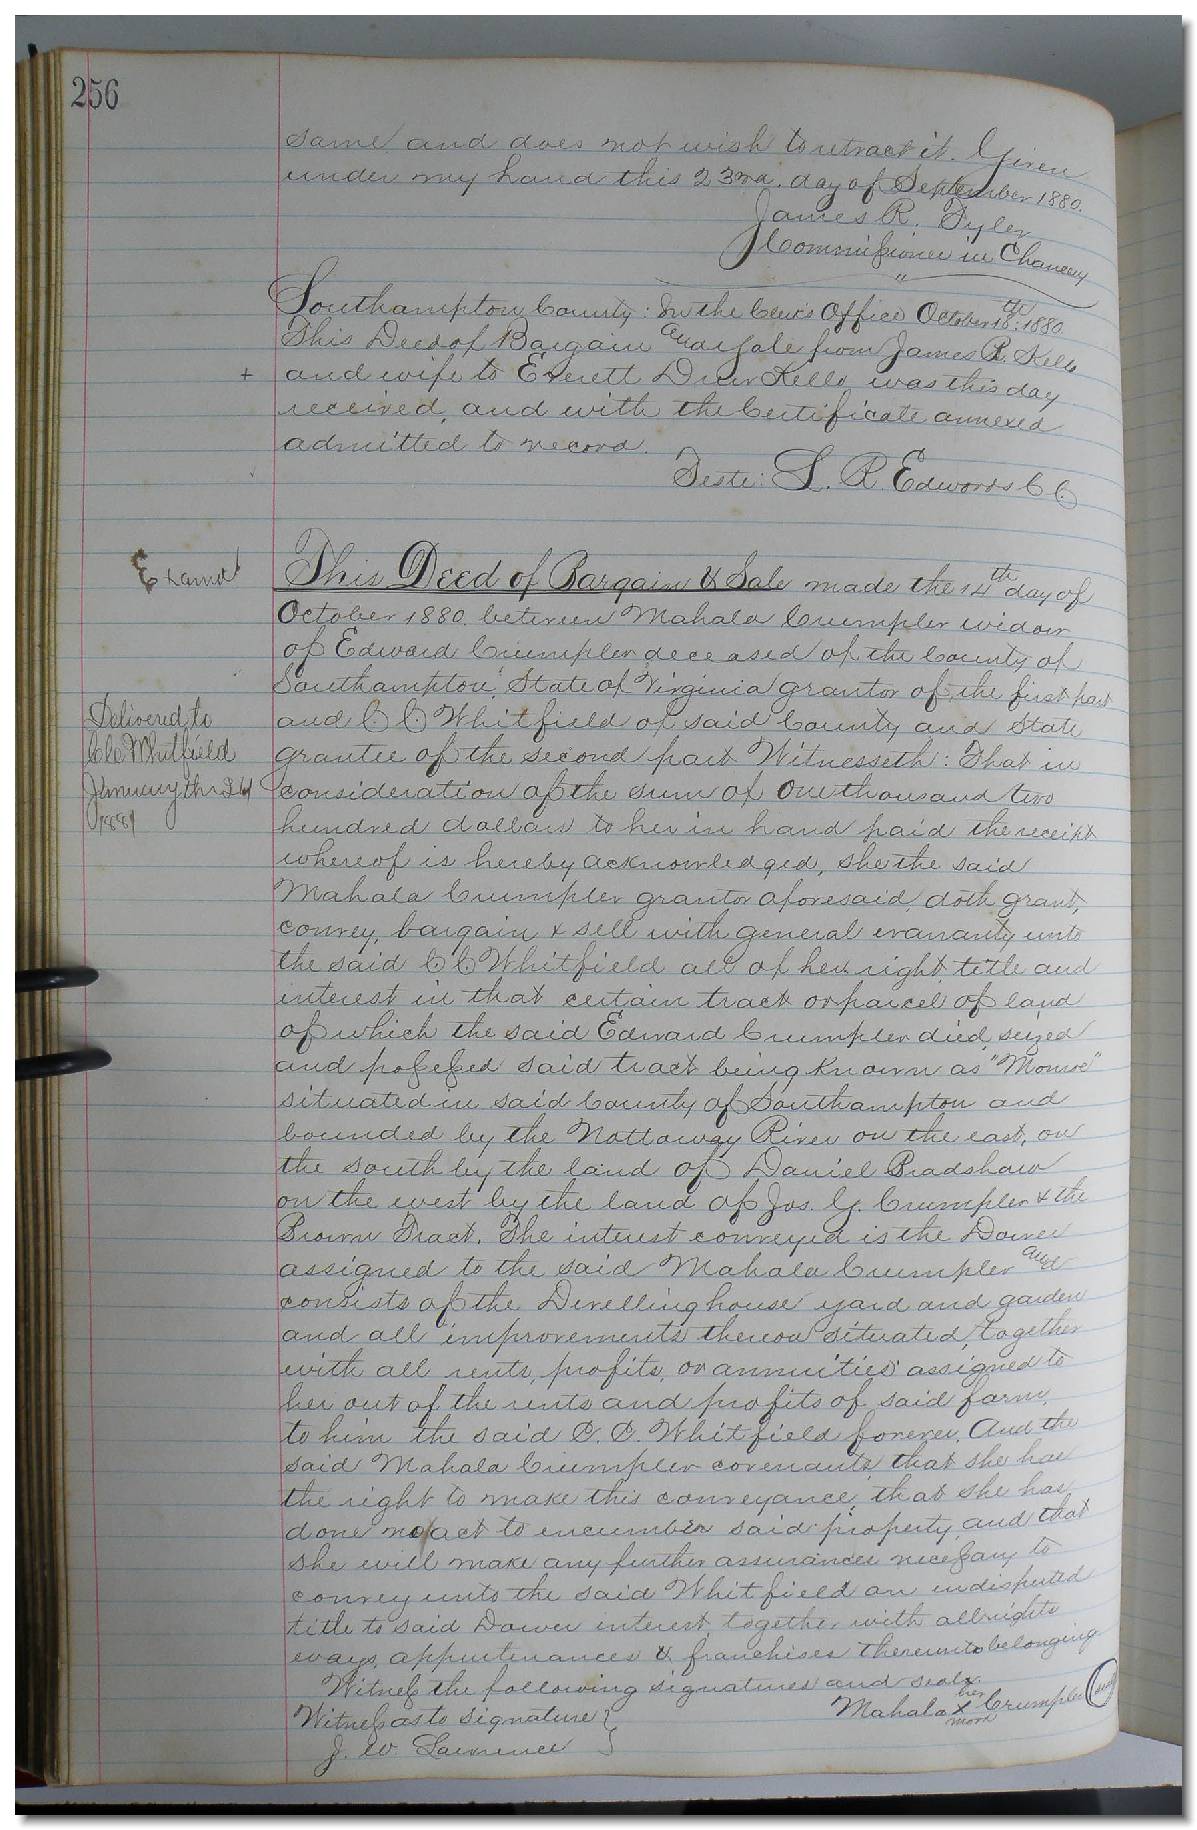 256
same and does not wish to retract it. Given
under my hand this 23rd. day of September 1880.
James R. Tyler
Commissioner in Chancery
"
Southampton County: In the Clerk's Office October 18th: 1880
This Deed of Bargain and Sale from James R. Kello
+ and wife to Everett Drew Kello was this day
received, and with the Certificate annexed
admitted to record.
Teste: L. R. Edwards C C
Examd
This Deed of Bargain & Sale made the 14th day of
October 1880. between Mahala Crumpler widow
of Edward Crumpler deceased of the County of
Southampton, State of Virginia grantor of the first part
and C C Whitfield of said County and State
grantee of the second part Witnesseth: That in
consideration of the sum of One thousand two
hundred dollars to her in hand paid the receipt
whereof is hereby acknowledged, she the said
Mahala Crumpler grantor aforesaid, doth grant,
convey, bargain & sell with general warranty unto
the said C C Whitfield all of her right title and
interest in that certain tract or parcel of land
of which the said Edward Crumpler died, seized
and possessed said tract being known as "Monroe"
situated in said County of Southampton and
bounded by the Nottoway River on the east, on
the south by the land of Daniel Bradshaw
on the west by the land of Jos. G. Crumpler & the
Brown Tract. The interest conveyed is the Dower
assigned to the said Mahala Crumpler and
consists of the Dwelling house yard and garden
and all improvements thereon situated, together
with all rents, profits, or annuities assigned to
her out of the rents and profits of said farm,
to him the said C. C. Whitfield forever. And the
said Mahala Crumpler covenants, that she has
the right to make this conveyance, that she has
done no act to encumber said property, and that
she will make any further assurances necessary to
convey unto the said Whitfield an undisputed
title to said Dower interest, together with all rights
ways, appurtenances & franchises thereunto belonging
Witness the following signatures and seals
Mahala her X mark Crumpler (seal)
Witness as to signature }
J. W. Lawrence }
Delivered to
C C Whitfield
January the 24
1881